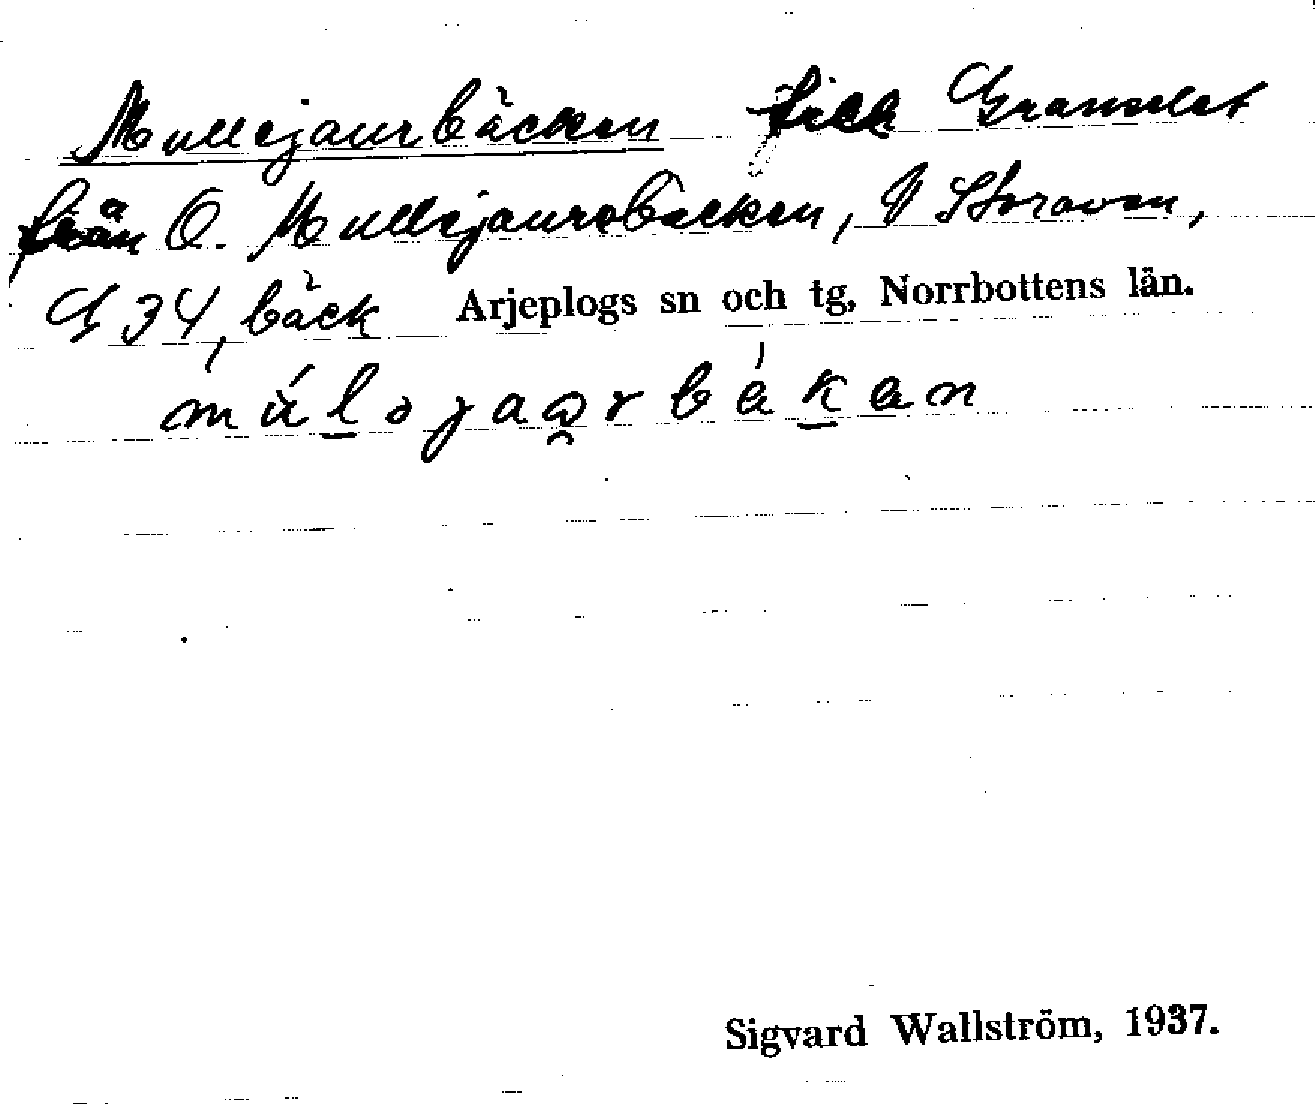 Mullejaurbäcken till Granselet
från Ö. Mullejaurebäcken, V Storavan,
G 34, bäck Arjeplogs sn och tg, Norrbottens län.
Sigvard Wallström, 1937.